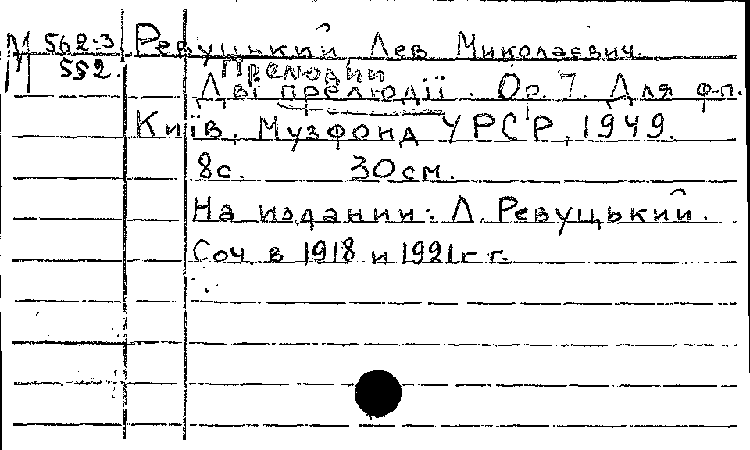 М 562-3 Ревуцький, Лев Миколаєвич.
М 552. Прелюдии
Дві прелюдії. Op. 7. Для ф-п.
Київ, Музфонд УРСР, 1949.
8с. 30см.
На издании: Л. Ревуцький.
Соч. в 1918 и 1921 г г.